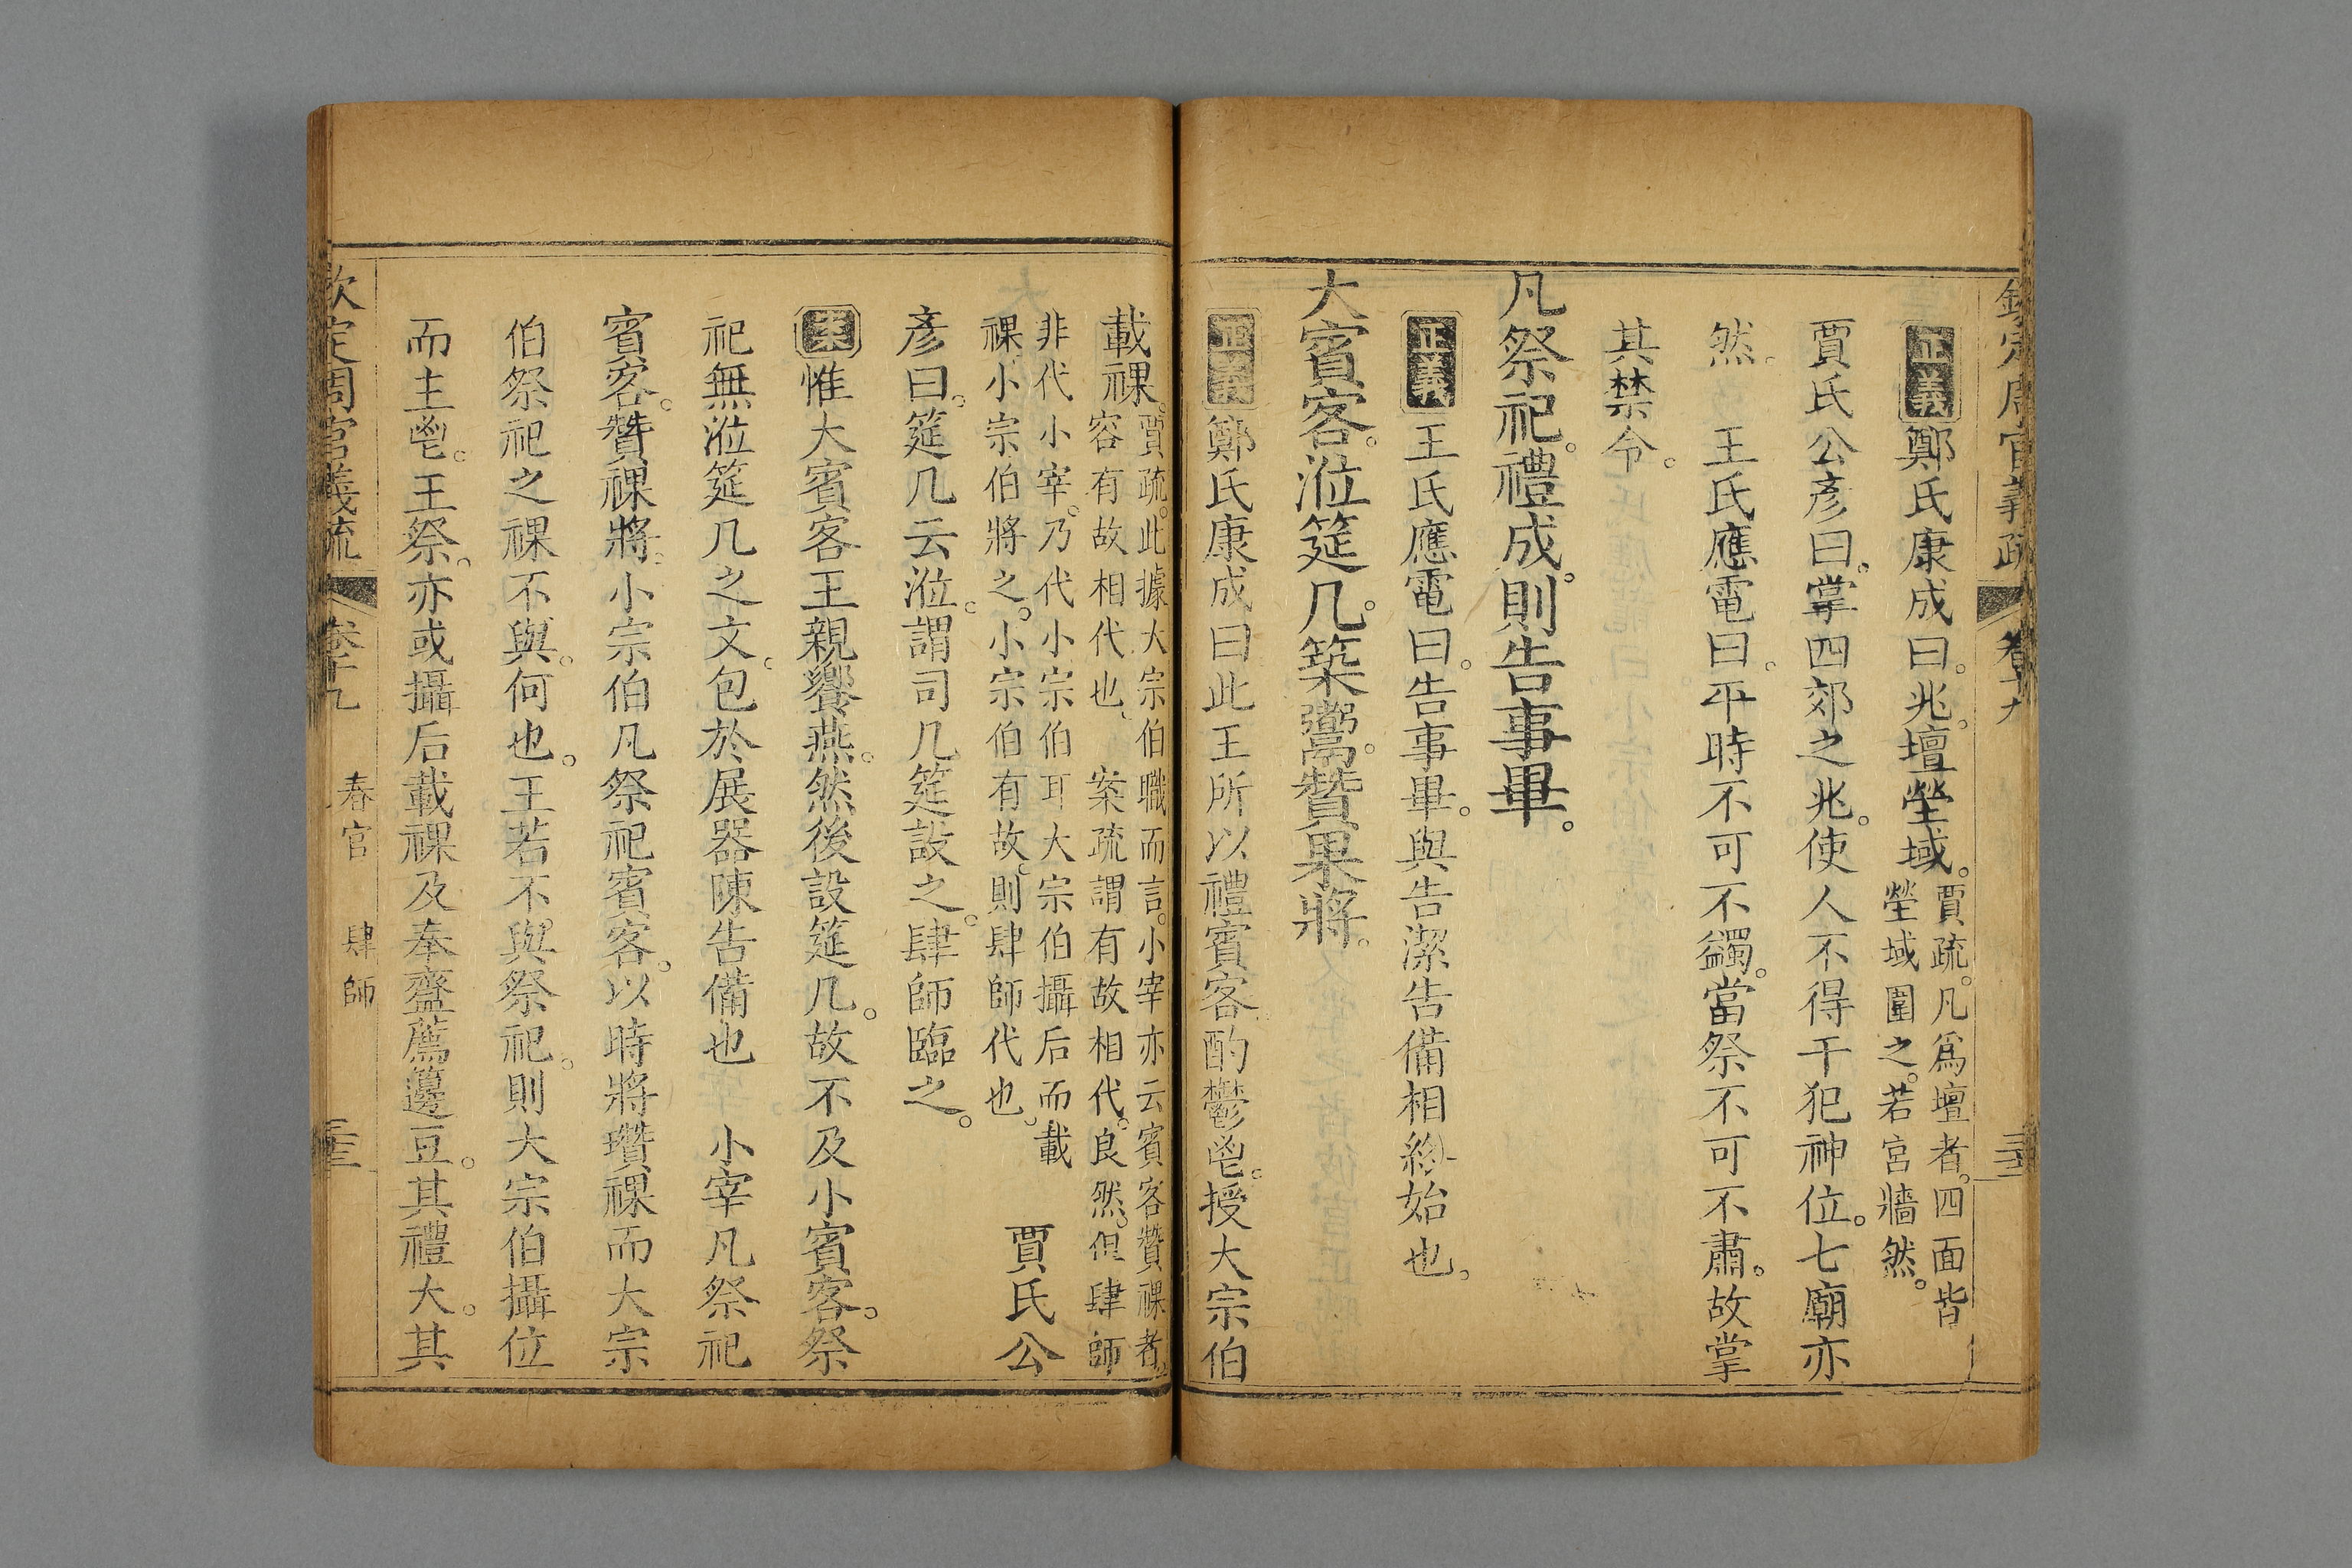 欽定周官義疏 卷十九
正義鄭氏康成曰。兆。壇塋域。賈疏。凡爲壇者。四面皆
塋域圍之。若宮牆然。
賈氏公彥曰。掌四郊之兆。使人不得干犯神位。七廟亦
然。王氏應電曰。平時不可不蠲。當祭不可不肅。故掌
其禁令。
凡祭祀。禮成。則告事畢。
正義王氏應電曰。告事畢。與告潔告備相終始也。
大賓客。涖筵几。築鬻。贊果將。
正義鄭氏康成曰此王所以禮賓客。酌鬱鬯。授大宗伯
載祼。賈疏。此據大宗伯職而言。小宰亦云賓客贊祼者。
容有故相代也。 案疏謂有故相代。良然。但肆師
非代小宰。乃代小宗伯耳大宗伯攝后而載
祼。小宗伯將之。小宗伯有故。則肆師代也。
賈氏公
彥曰。筵几云涖。謂司几筵設之。肆師臨之。
案惟大賓客王親饗燕。然後設筵几。故不及小賓客。祭
祀無涖筵几之文。包於展器陳告備也 小宰凡祭祀
賓客。贊祼將。小宗伯凡祭祀賓客。以時將瓚祼而大宗
伯祭祀之祼不與。何也。王若不與祭祀。則大宗伯攝位
而主鬯。王祭。亦或攝后載祼及奉齍薦籩豆。其禮大。其
欽定周官義疏 卷十九 春官 肆師